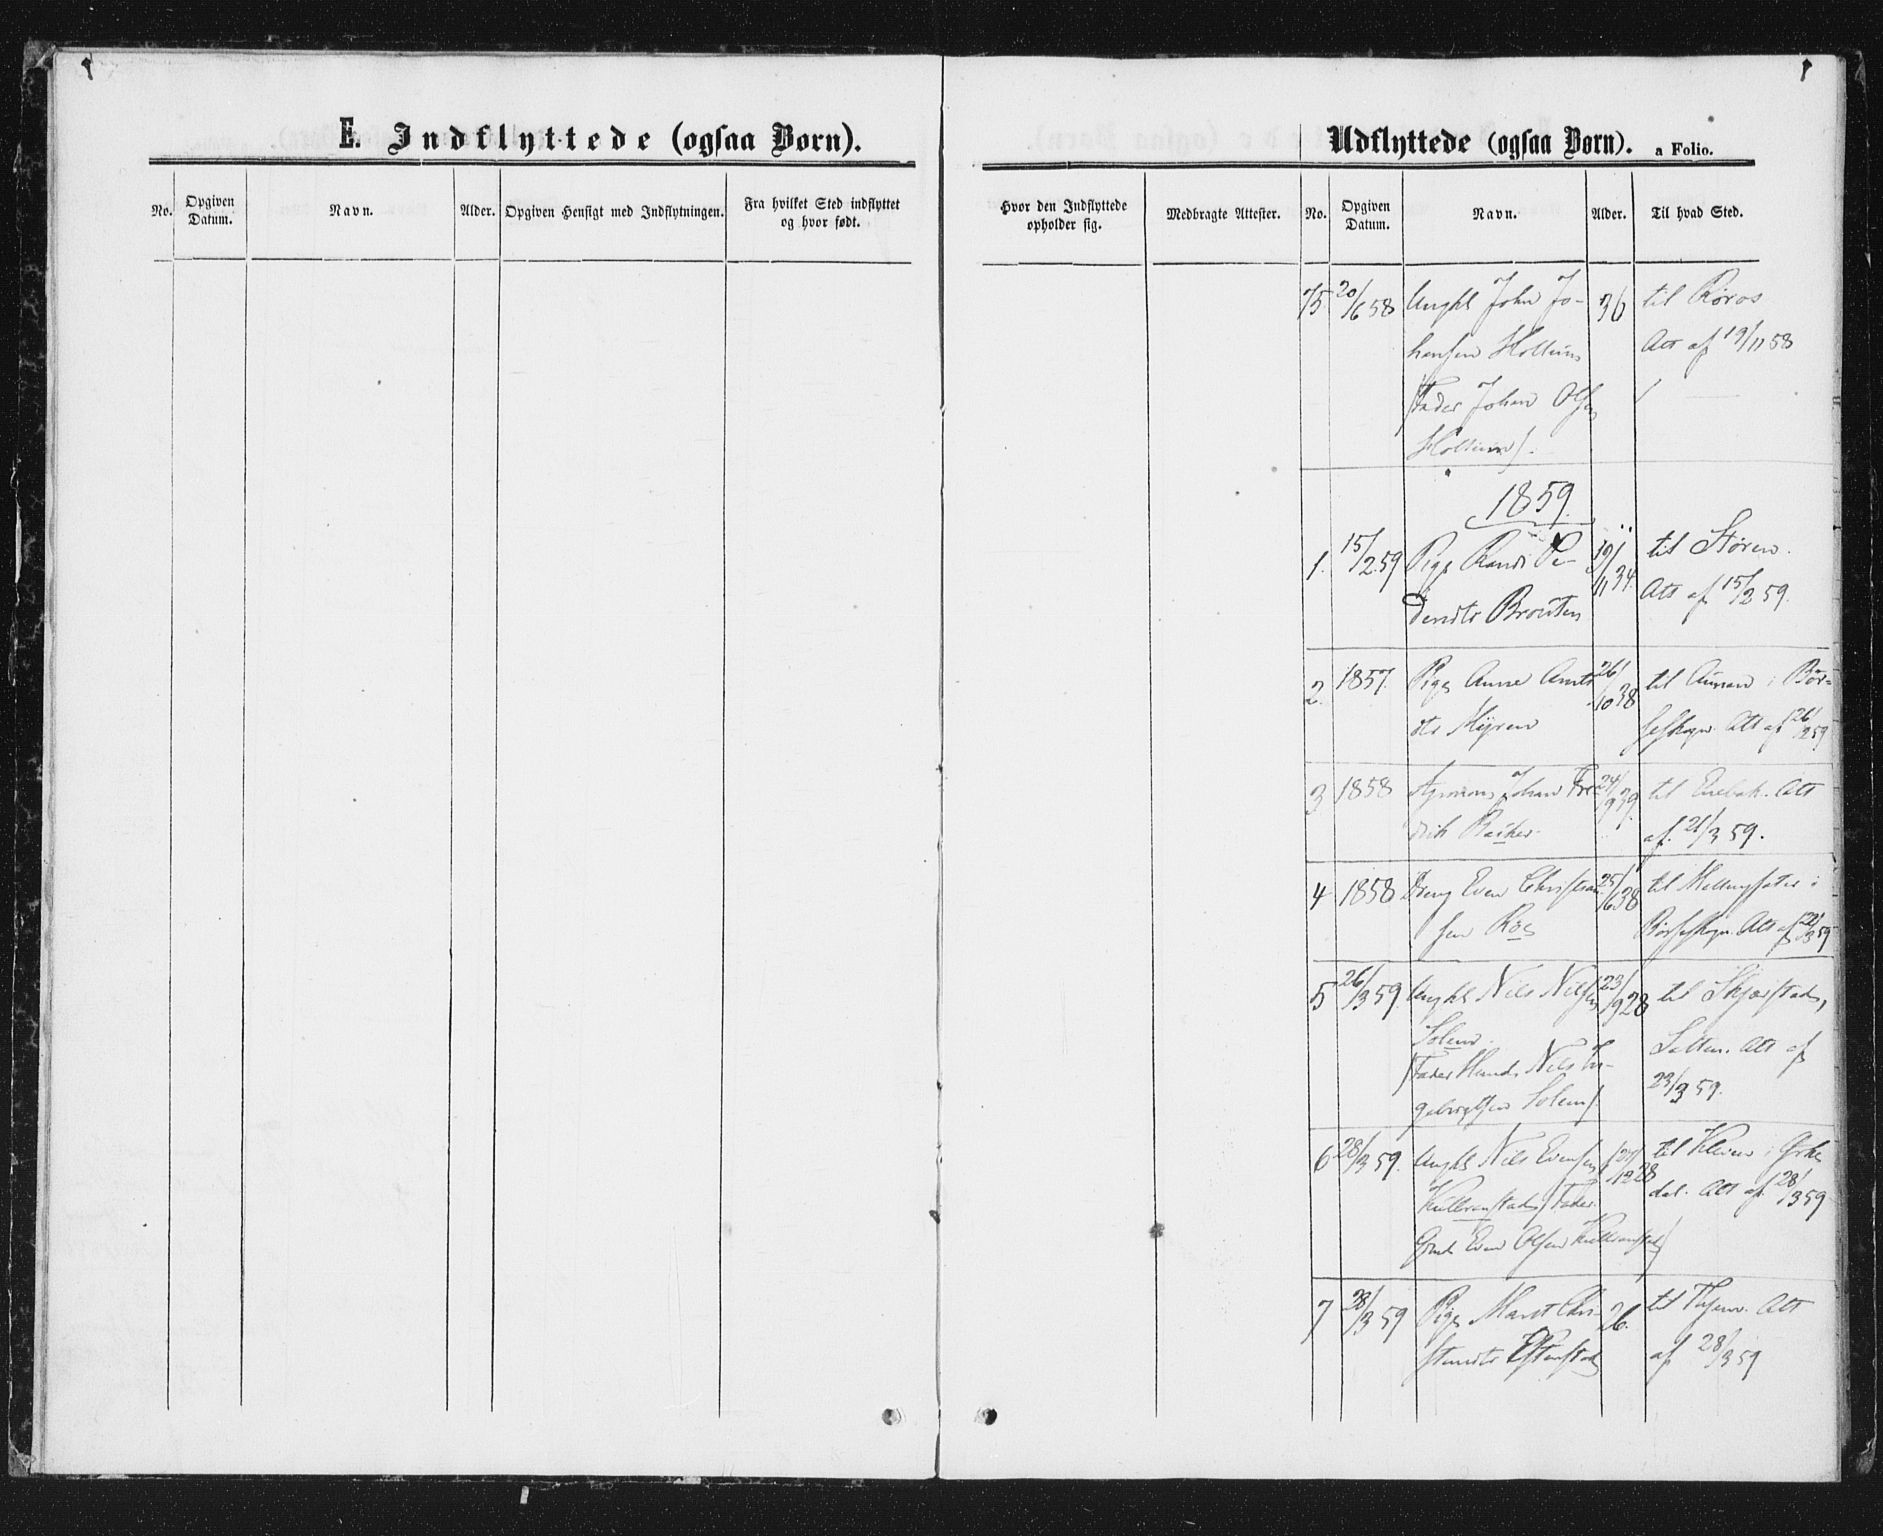 E. Indflyttede (ogsaa Børn).
No.
Opgiven
Datum.
Navn.
Alder.
Opgiven Hensigt med Indflytningen.
Fra hvilket Sted indflyttet
og hvor født.
Udflyttede (ogsaa Børn). a Folio.
Hvor den Indflyttede
opholder sig.
Medbragte Attester.
No.
Opgiven
Datum.
Navn.
Alder.
Til hvad Sted.
75 20/6 58 Ungkl John Jo- 36 til Røros
hansen Att af 19/11 58
(Fader Johan Olsen
1859.
1. 15/2 59 Pige Randi Pe- 19/11 34 til Støren.
dersdtr Brøtten Att af 15/2 59.
2. 1857. Pige Anne 26/10 38 til Aunan i Bør-
Myren seskogn. Att af 26/2 59
3 1858 Johan Fre- 24/9 39. til Enebak. Att
drik af 21/3 59.
4 1858 Dreng Even Christian- 25/6 38 til i
sen Røe Børseskogn. Att af 59
5 26/3 59. Ungkl Nils Nilsen 23/9 28 til Skjerstad,
Solem. Salten. Att af
(Fader Nils In- 23/3 59.
gebrigtsen Solem)
6 28/3 59. Ungkl Nils Evensen 28 til i Orke
Fader dal. Att af 28/3 59
Even Olsen
7 28/3 59 Pige Marit Chri- 26. til Att
stensdtr af 28/3 59